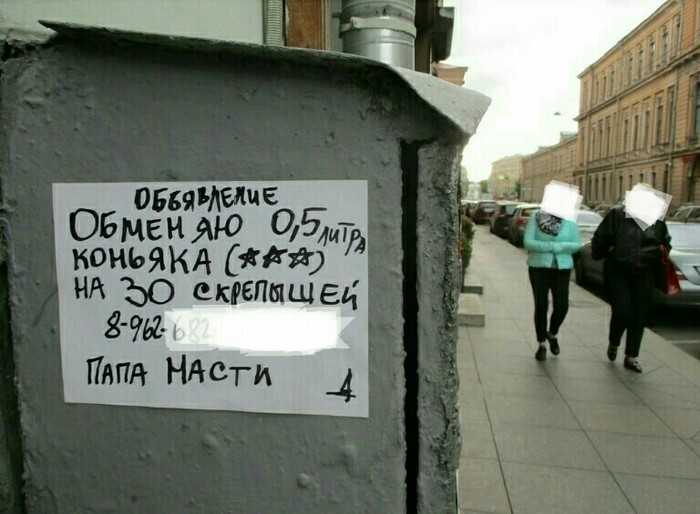 ОБЬЯВЛЕНИЕ
ОБМЕНЯЮ 0,5 ЛИТРА
КОНЬЯКА (★★★)
НА 30 СКРЕПЫШЕЙ
8-962-682-
ПАПА НАСТИ